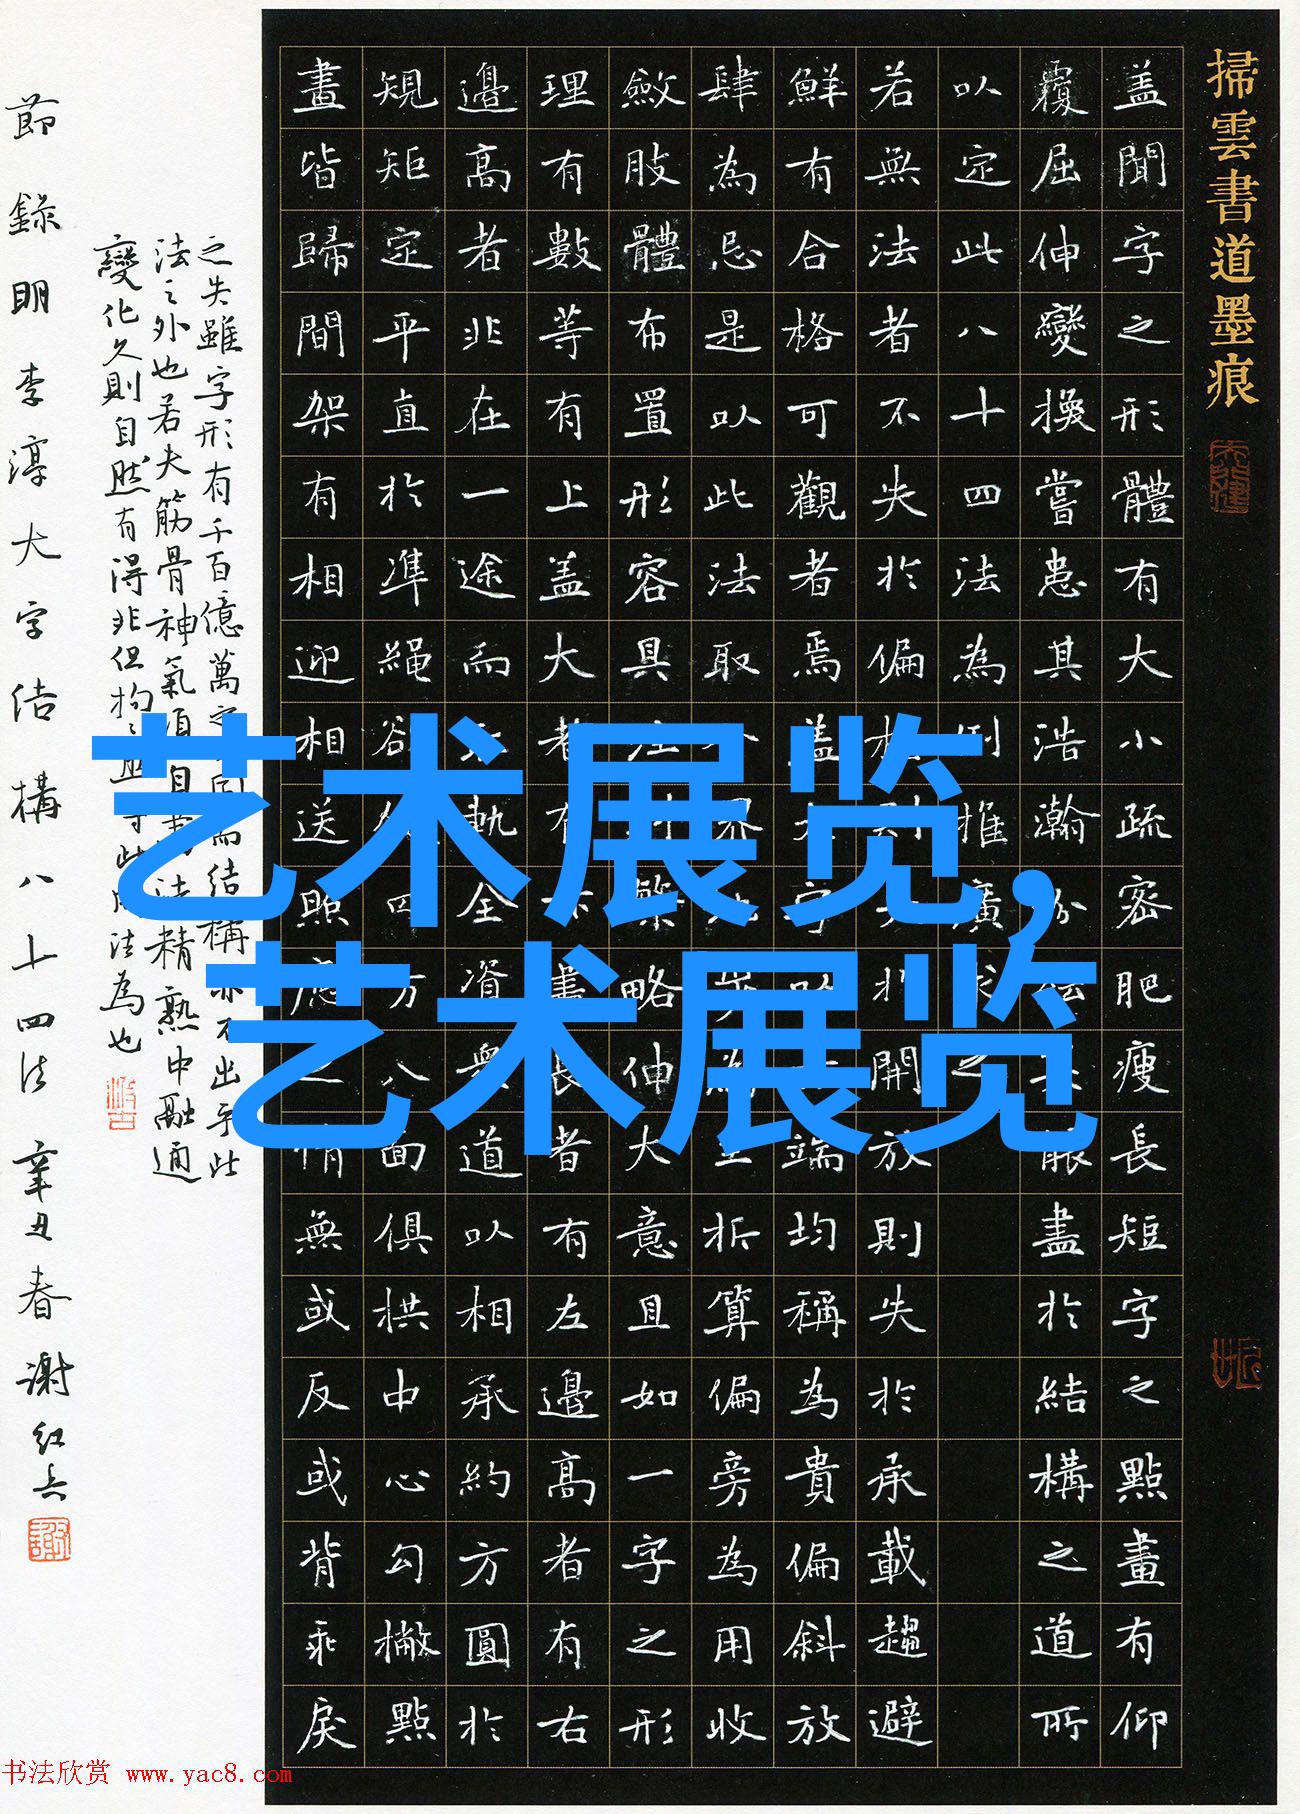 艺术展览,
艺术展览
掃雲書道墨痕
盖聞字之形體有大小疏密肥瘦長短字之點畫有仰
覆屈伸變換嘗患其浩瀚能盡於結構之道所
以定此八十四法為例推廣
若無法者不失於偏開放則失於承載趨避
鮮有合格可觀者焉盖字端均稱為貴偏斜放
肆為忌是以此法取折算偏旁為用收
斂肢體布置形容具繁略伸大意且如一字之形
理有數等有上盖大者有畫長者有左邊高者有右
邊高者非在一途而執全資眾道以相承約方圓於
規矩定平直於準繩欲四方八面俱栱中心勾撇點
畫皆歸間架有相迎相送照應情無或反或背乖戾
之失雖字形有千百億萬結構亦不出乎此
法之外也若夫筋骨神氣須自法精熟中融通
變化久則自然有得非但拘此法為也
節錄明李淳大字结構八十四法 辛丑春 謝红兵
书法欣赏 www.yac8.com